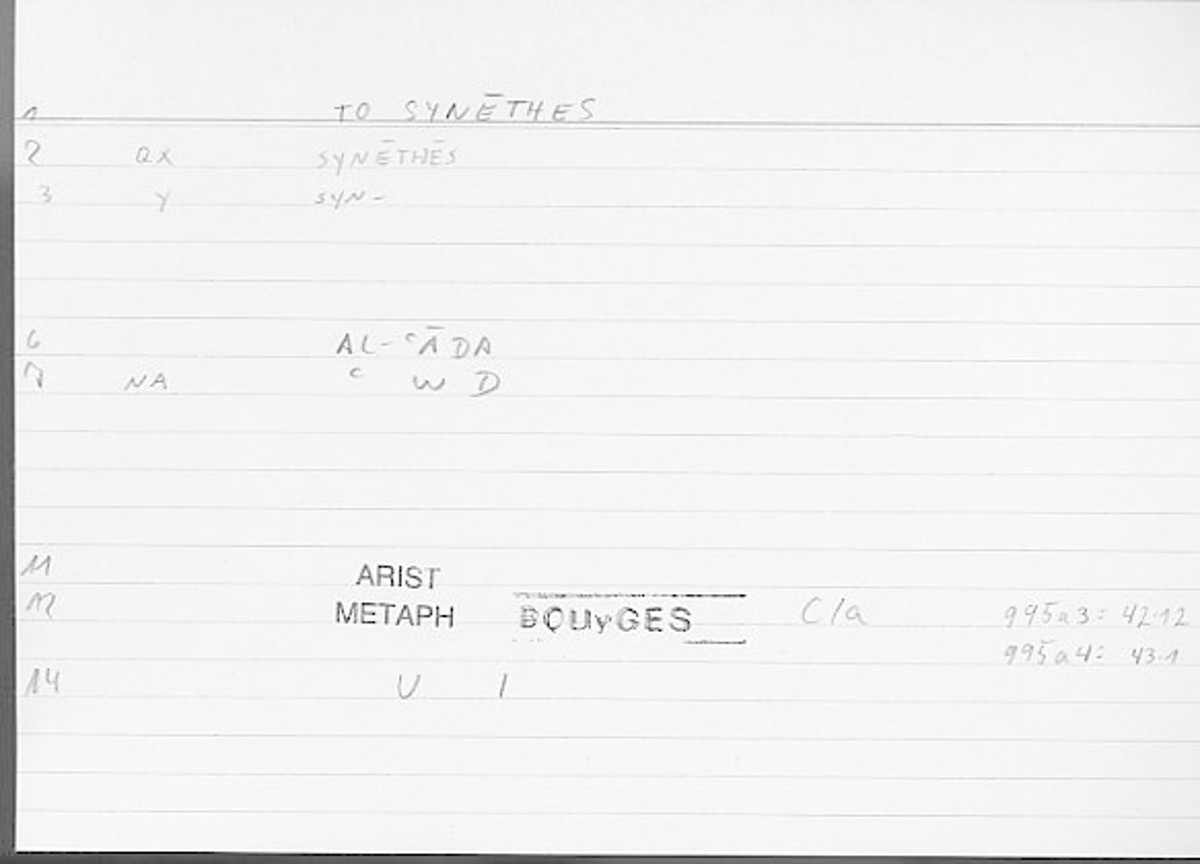 1 TO SYNĒTHES
2 QX SYNĒTHĒS
3 Y SYN-
6 AL-ʿĀDA
7 NA ʿ W D
11 ARIST
12 METAPH BOUyGES C/a 995a3: 42.12
995a4: 43.1
14 U I